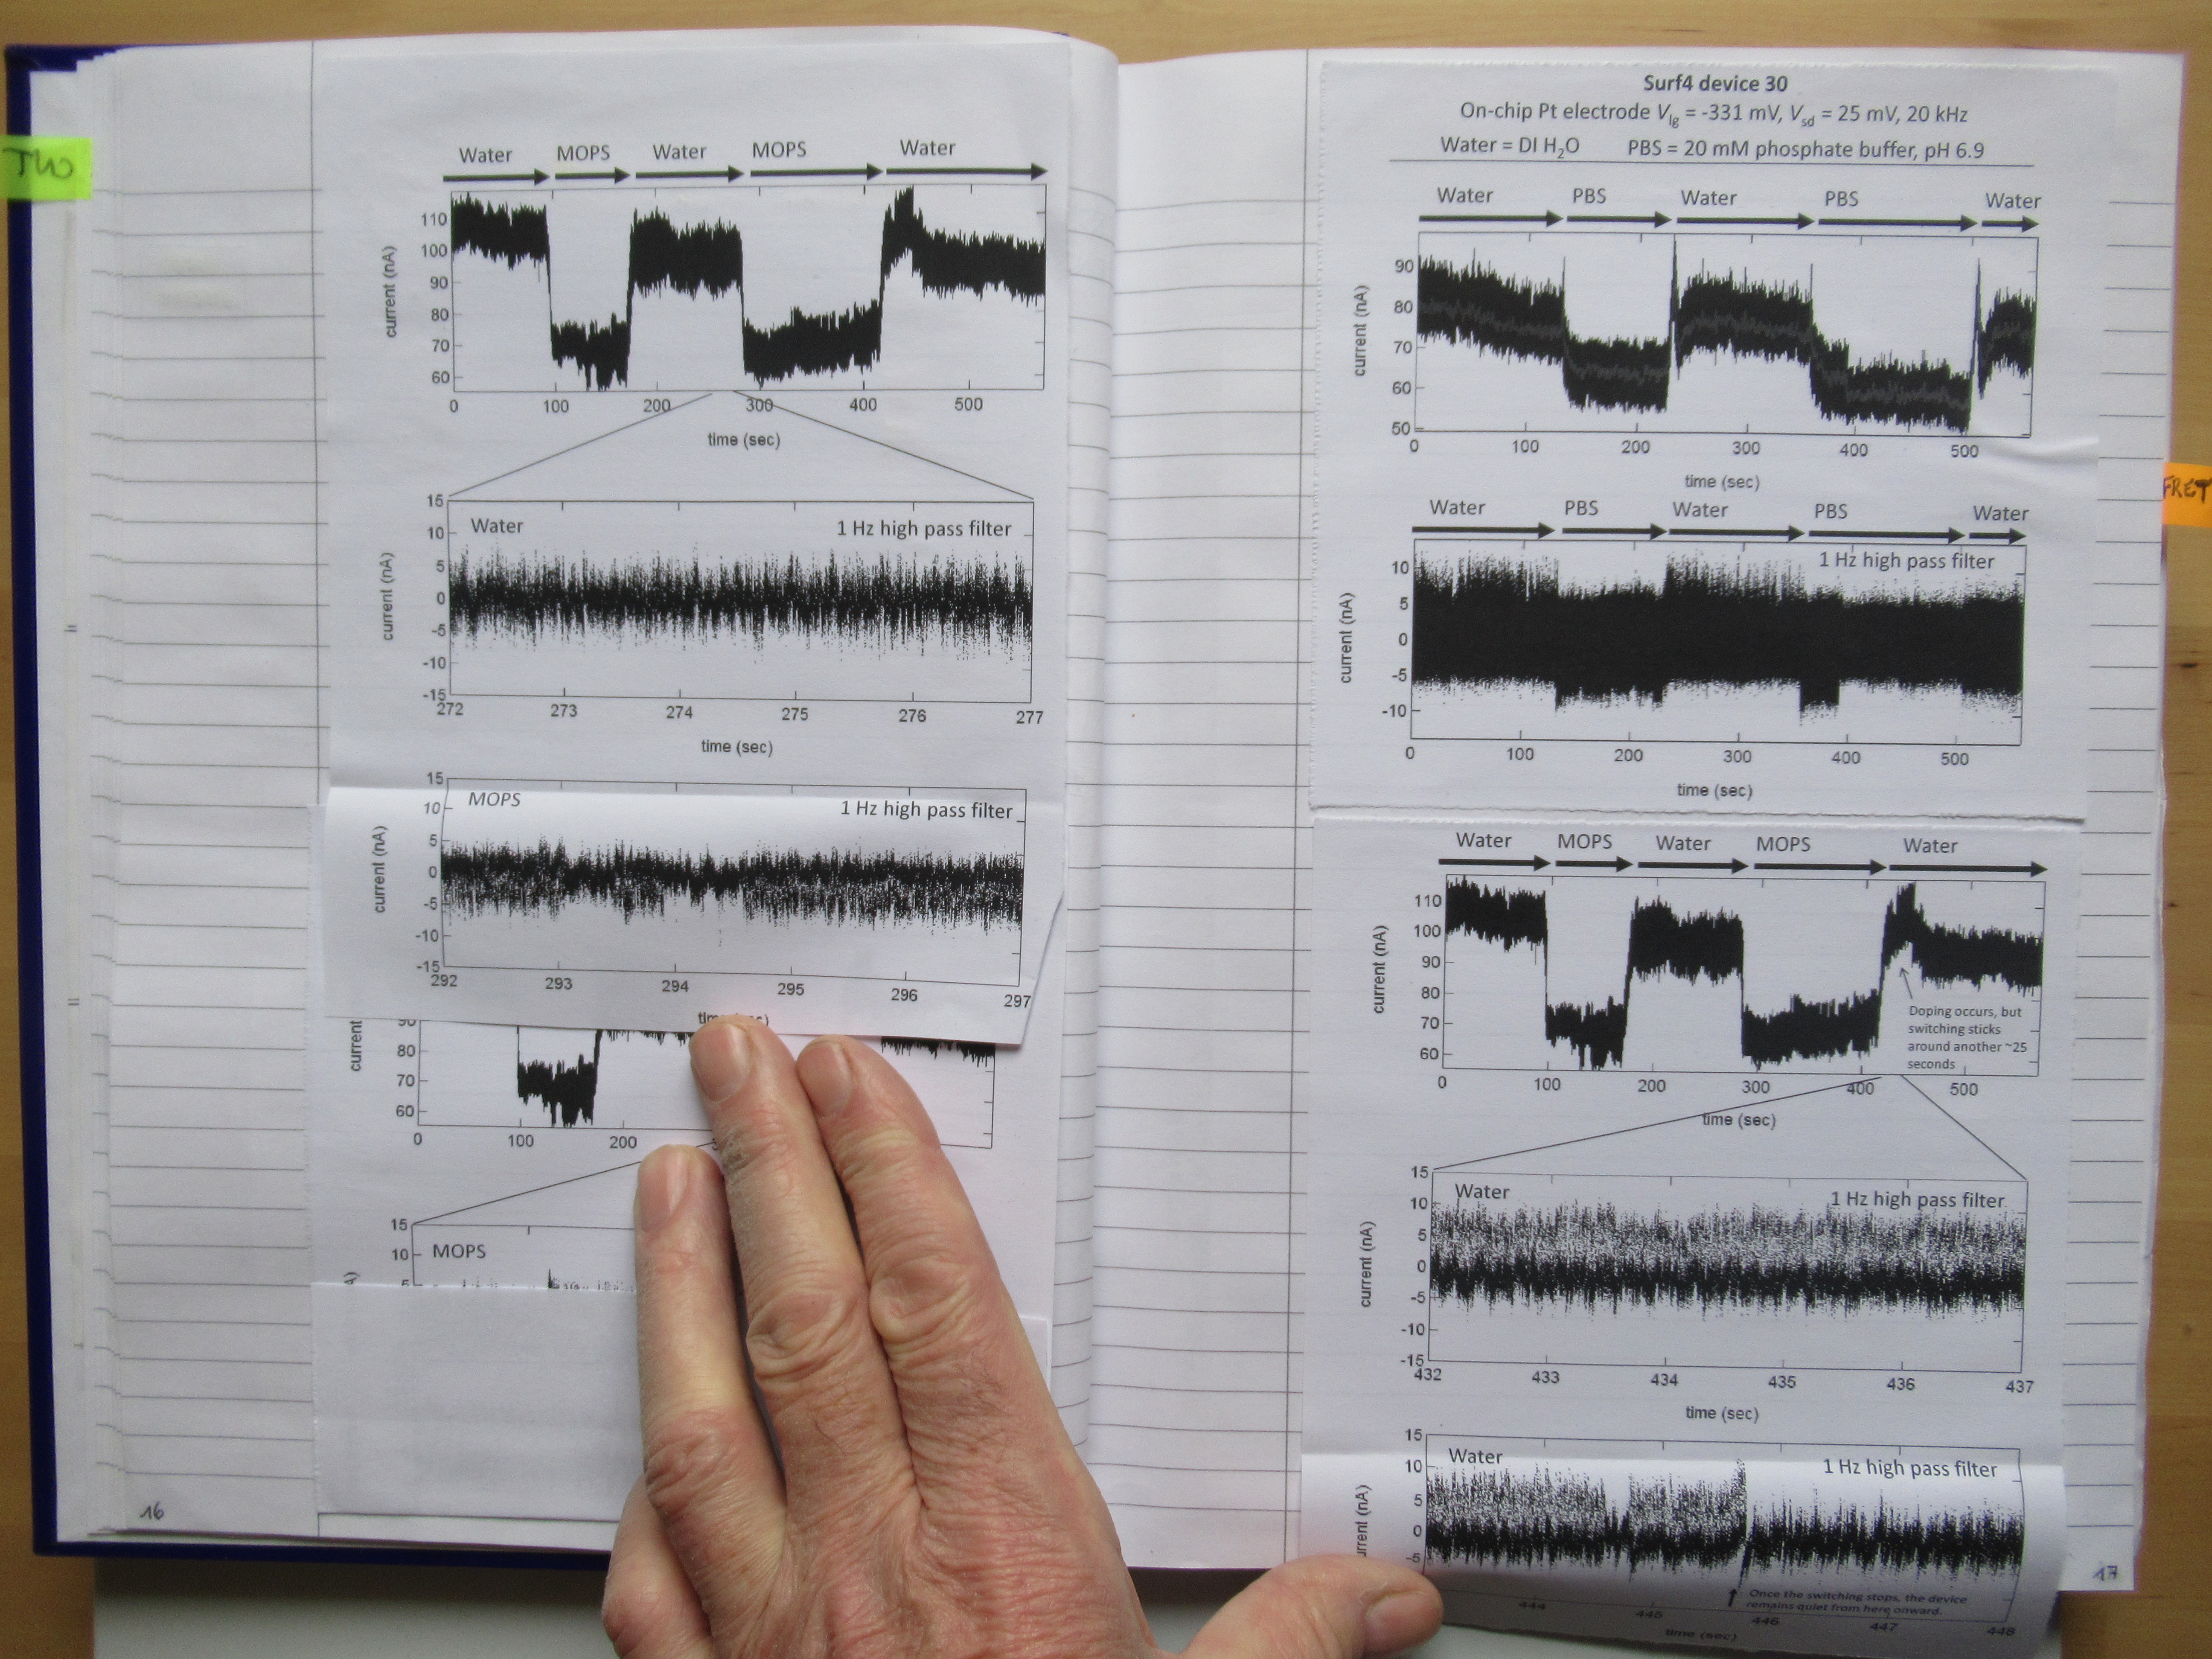 TWO
Water MOPS Water MOPS Water
110
100
90
80
70
60
current (nA)
0 100 200 300 400 500
time (sec)
15
10
5
0
-5
-10
-15
current (nA)
Water 1 Hz high pass filter
272 273 274 275 276 277
time (sec)
15
10
5
0
-5
-10
-15
current (nA)
MOPS 1 Hz high pass filter
292 293 294 295 296 297
90
80
70
60
current
0 100 200
15
10
5
MOPS
16
Surf4 device 30
On-chip Pt electrode Vlg = -331 mV, Vsd = 25 mV, 20 kHz
Water = DI H2O PBS = 20 mM phosphate buffer, pH 6.9
Water PBS Water PBS Water
90
80
70
60
50
current (nA)
0 100 200 300 400 500
time (sec)
Water PBS Water PBS Water
1 Hz high pass filter
10
5
0
-5
-10
current (nA)
0 100 200 300 400 500
time (sec)
Water MOPS Water MOPS Water
110
100
90
80
70
60
current (nA)
Doping occurs, but
switching sticks
around another ~25
seconds
0 100 200 300 400 500
time (sec)
15
10
5
0
-5
-10
-15
current (nA)
Water 1 Hz high pass filter
432 433 434 435 436 437
time (sec)
15
10
5
0
-5
Water 1 Hz high pass filter
Once the switching stops, the device
remains quiet from here onward.
444 445 446 447 448
time (sec)
17
FRET